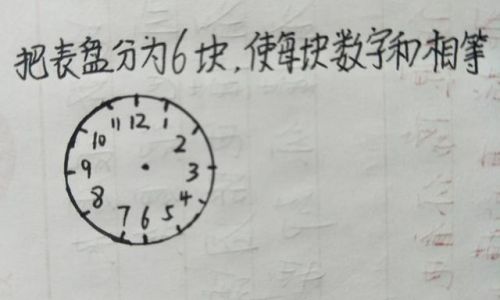 把表盘分为6块,使每块数字和相等
11 12 1
10 2
9 3
8 4
7 6 5